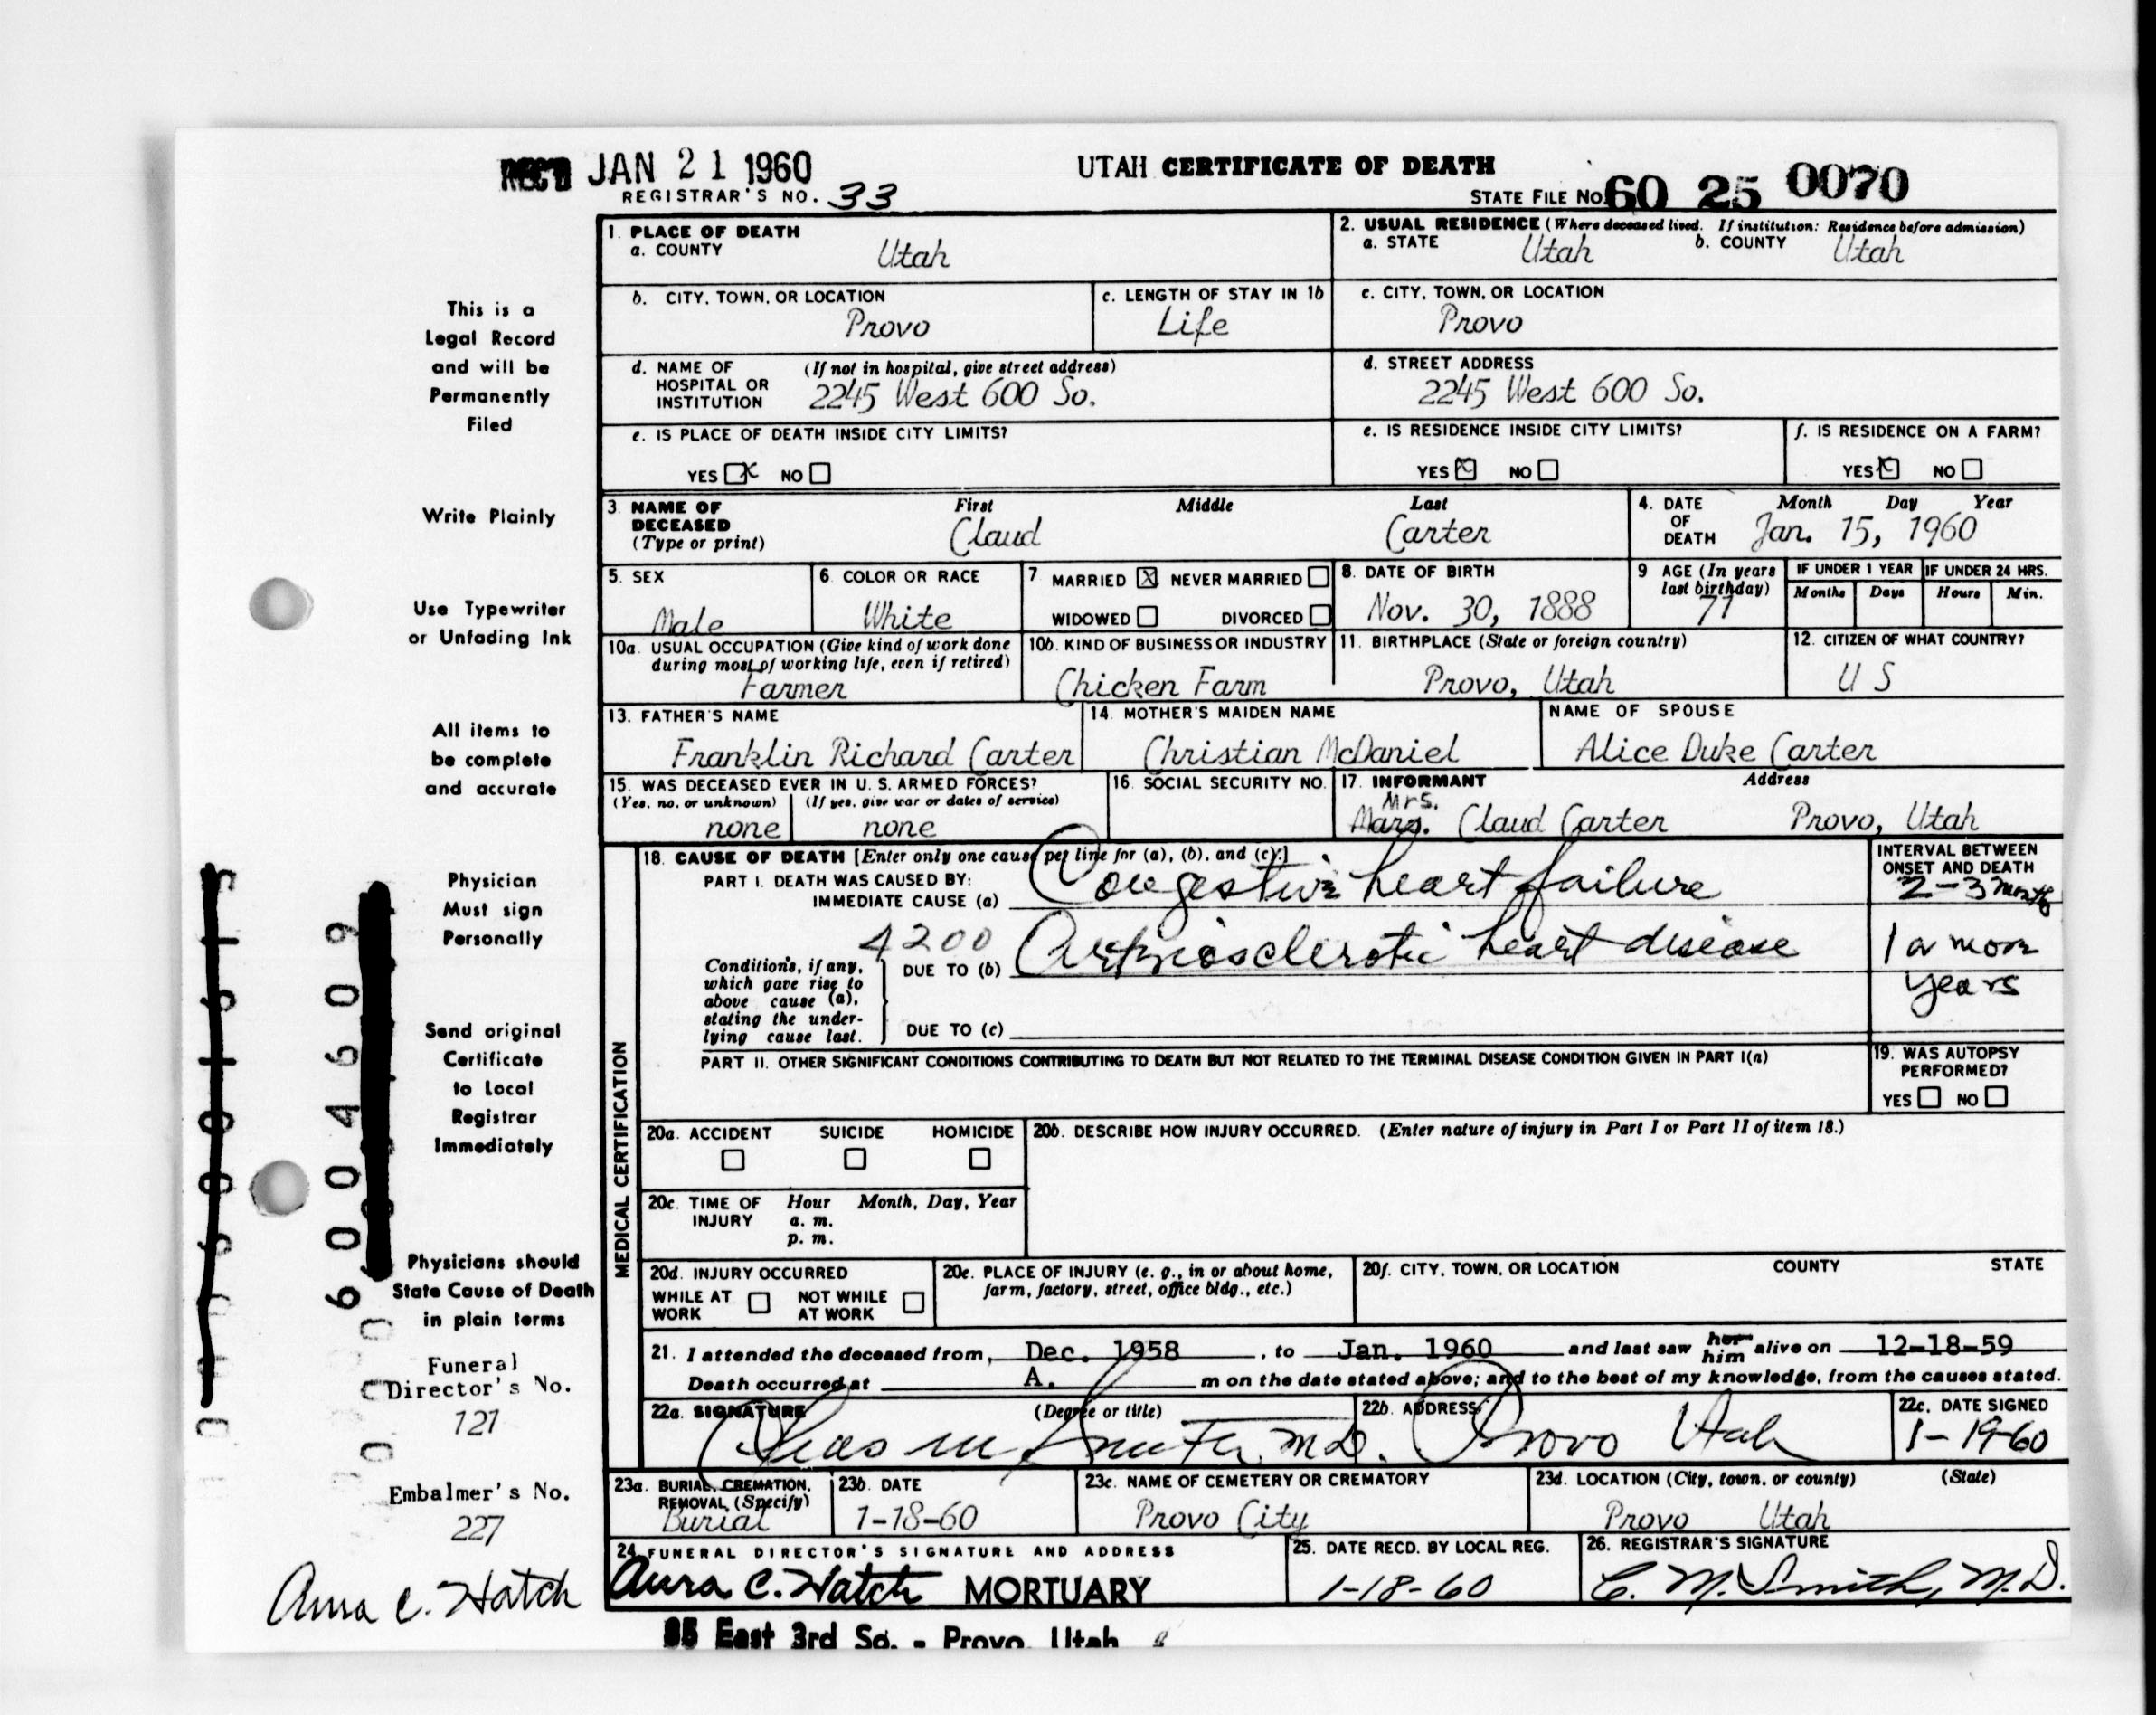 REC'D JAN 21 1960
UTAH CERTIFICATE OF DEATH
REGISTRAR'S NO. 33
STATE FILE NO. 60 25 0070
1. PLACE OF DEATH
a. COUNTY Utah
2. USUAL RESIDENCE (Where deceased lived. If institution: Residence before admission)
a. STATE Utah b. COUNTY Utah
b. CITY, TOWN, OR LOCATION
Provo
c. LENGTH OF STAY IN 1b
Life
c. CITY, TOWN, OR LOCATION
Provo
d. NAME OF HOSPITAL OR INSTITUTION (If not in hospital, give street address)
2245 West 600 So.
d. STREET ADDRESS
2245 West 600 So.
e. IS PLACE OF DEATH INSIDE CITY LIMITS?
YES X NO
e. IS RESIDENCE INSIDE CITY LIMITS?
YES X NO
f. IS RESIDENCE ON A FARM?
YES X NO
3. NAME OF DECEASED (Type or print)
First Middle Last
Claud Carter
4. DATE OF DEATH Month Day Year
Jan. 15, 1960
5. SEX
Male
6. COLOR OR RACE
White
7. MARRIED X NEVER MARRIED
WIDOWED DIVORCED
8. DATE OF BIRTH
Nov. 30, 1888
9 AGE (In years last birthday)
71
IF UNDER 1 YEAR
Months Days
IF UNDER 24 HRS.
Hours Min.
10a. USUAL OCCUPATION (Give kind of work done during most of working life, even if retired)
Farmer
10b. KIND OF BUSINESS OR INDUSTRY
Chicken Farm
11. BIRTHPLACE (State or foreign country)
Provo, Utah
12. CITIZEN OF WHAT COUNTRY?
U S
13. FATHER'S NAME
Franklin Richard Carter
14. MOTHER'S MAIDEN NAME
Christian McDaniel
NAME OF SPOUSE
Alice Duke Carter
15. WAS DECEASED EVER IN U. S. ARMED FORCES?
(Yes, no, or unknown) (If yes, give war or dates of service)
none none
16. SOCIAL SECURITY NO.
17. INFORMANT Address
Mrs.
Claud Carter Provo, Utah
MEDICAL CERTIFICATION
18. CAUSE OF DEATH [Enter only one cause per line for (a), (b), and (c).]
PART I. DEATH WAS CAUSED BY:
IMMEDIATE CAUSE (a) Congestive heart failure
INTERVAL BETWEEN ONSET AND DEATH
2-3 months
4200
Conditions, if any, which gave rise to above cause (a), stating the underlying cause last.
DUE TO (b) Arteriosclerotic heart disease
1 or more
years
DUE TO (c)
PART II. OTHER SIGNIFICANT CONDITIONS CONTRIBUTING TO DEATH BUT NOT RELATED TO THE TERMINAL DISEASE CONDITION GIVEN IN PART I(a)
19. WAS AUTOPSY PERFORMED?
YES NO
20a. ACCIDENT SUICIDE HOMICIDE
20b. DESCRIBE HOW INJURY OCCURRED. (Enter nature of injury in Part I or Part II of item 18.)
20c. TIME OF INJURY Hour Month, Day, Year
a. m.
p. m.
20d. INJURY OCCURRED
WHILE AT WORK NOT WHILE AT WORK
20e. PLACE OF INJURY (e. g., in or about home, farm, factory, street, office bldg., etc.)
20f. CITY, TOWN, OR LOCATION COUNTY STATE
21. I attended the deceased from, Dec. 1958, to Jan. 1960 and last saw her him alive on 12-18-59
Death occurred at A. m on the date stated above; and to the best of my knowledge, from the causes stated.
22a. SIGNATURE (Degree or title)
Chas M Smith M.D.
22b. ADDRESS
Provo Utah
22c. DATE SIGNED
1-19-60
23a. BURIAL, CREMATION, REMOVAL, (Specify)
Burial
23b. DATE
1-18-60
23c. NAME OF CEMETERY OR CREMATORY
Provo City
23d. LOCATION (City, town, or county) (State)
Provo Utah
24 FUNERAL DIRECTOR'S SIGNATURE AND ADDRESS
Aura C. Hatch MORTUARY
85 East 3rd So. - Provo, Utah
25. DATE RECD. BY LOCAL REG.
1-18-60
26. REGISTRAR'S SIGNATURE
C. M. Smith, M.D.
This is a
Legal Record
and will be
Permanently
Filed
Write Plainly
Use Typewriter
or Unfading Ink
All items to
be complete
and accurate
Physician
Must sign
Personally
Send original
Certificate
to Local
Registrar
Immediately
Physicians should
State Cause of Death
in plain terms
Funeral
Director's No.
121
Embalmer's No.
227
Aura C. Hatch
6004609